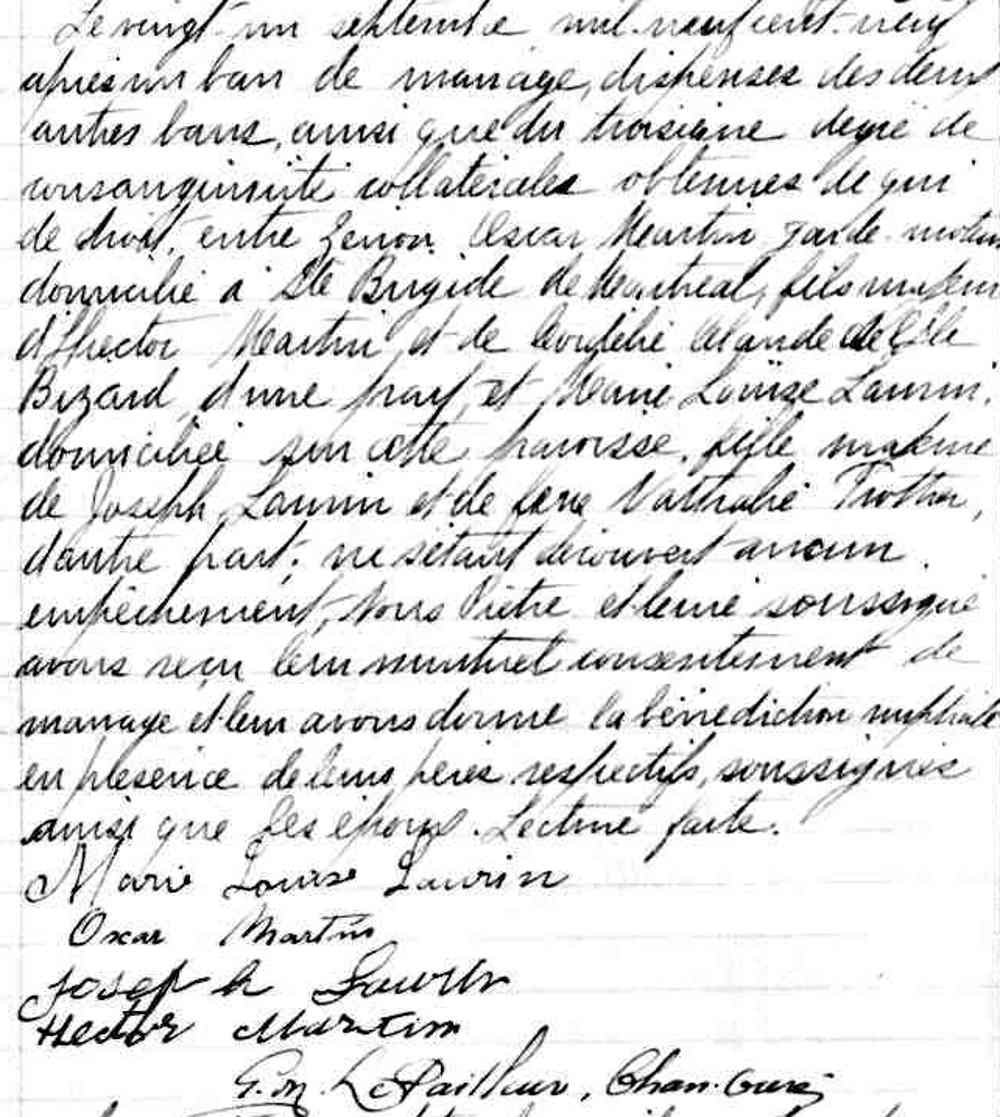 Le vingt-un septembre mil-neuf cent-neuf
après un ban de mariage, dispenses des deux
autres bans, ainsi que du troisième degré de
consanguinité collatérales obtenues de qui
de droit, entre Zenon Oscar Martin garde-moteur
domicilié à Ste Brigide de Montréal, fils majeur
d'Hector Martin et de Cordélie de l'Ile
Bizard, d'une part, et Marie Louise Laurin.
domiciliée sur cette paroisse, fille majeure
de Joseph Laurin et de feue Nathalie Trottier,
d'autre part; ne s'étant découvert aucun
empêchement, Nous Prêtre et Curé soussigné
avons reçu leur mutuel consentement de
mariage et leur avons donné la bénédiction nuptiale
en présence de leurs pères respectifs, soussignés
ainsi que les époux. Lecture faite.
Marie Louise Laurin
Oscar Martin
Joseph Laurin
Hector Martin
G. M. LePailleur, Chan. Curé